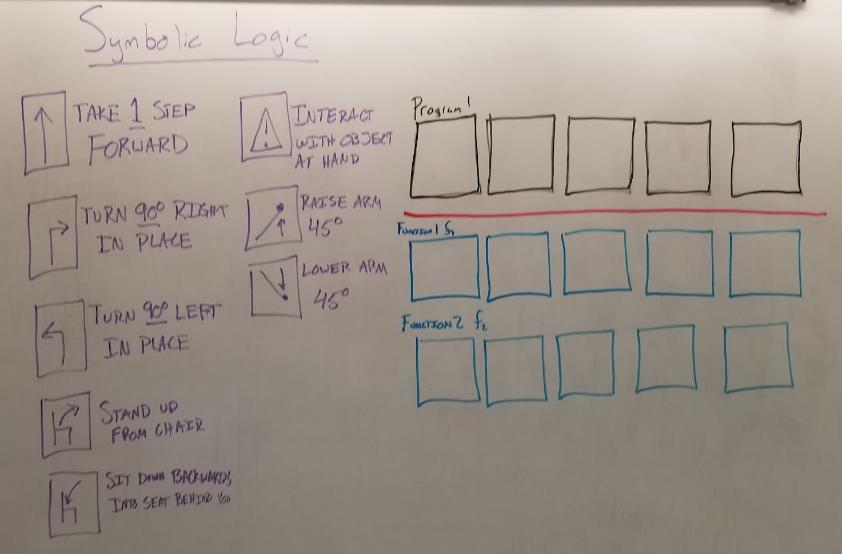 Symbolic Logic
TAKE 1 STEP
FORWARD
TURN 90° RIGHT
IN PLACE
TURN 90° LEFT
IN PLACE
STAND UP
FROM CHAIR
SIT DOWN BACKWARDS
INTO SEAT BEHIND YOU
INTERACT
WITH OBJECT
AT HAND
RAISE ARM
45°
LOWER ARM
45°
Program 1
Function 1 f1
FUNCTION 2 f2